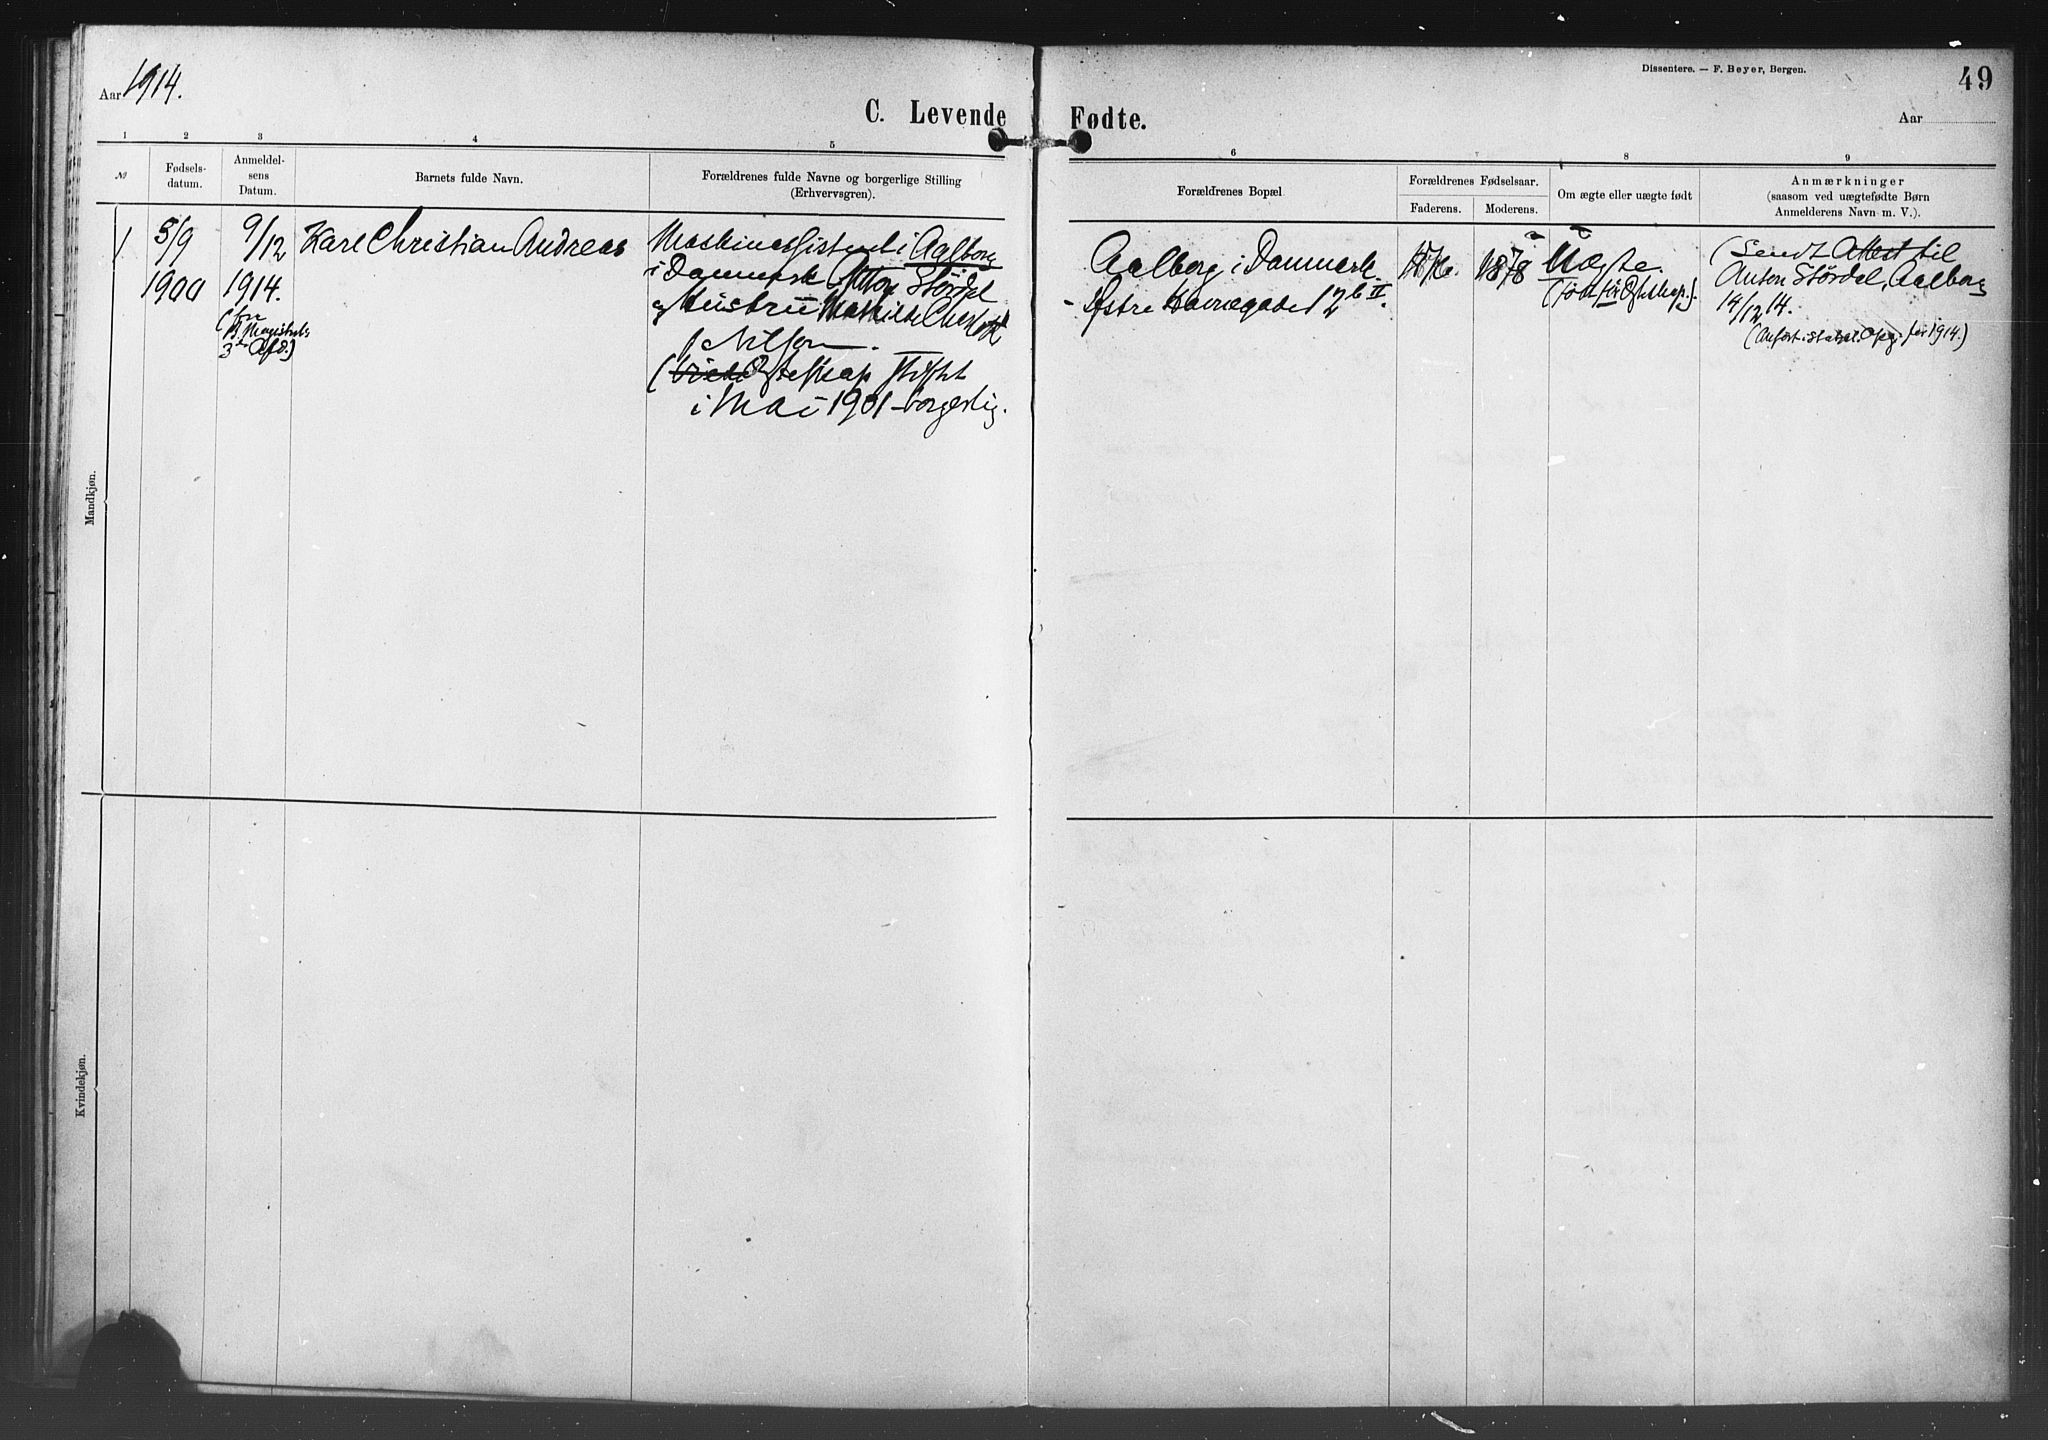 Dissentere. — F. Beyer, Bergen.
49
Aar 1914.
C. Levende Fødte.
Aar
1 2 3 4 5 6 7 8 9
№
Fødsels-
datum.
Anmeldel-
sens
Datum.
Barnets fulde Navn.
Forældrenes fulde Navne og borgerlige Stilling
(Erhvervsgren).
Forældrenes Bopæl.
Forældrenes Fødselsaar.
Faderens. Moderens.
Om ægte eller uægte født
Anmærkninger
(saasom ved uægtefødte Børn
Anmelderens Navn m. V.).
1
5/9
1900
9/12
1914.
(fra
Magistrats
3die Afd.)
Karl Christian Andreas
Maskinassistent i Aalborg
i Danmark Anton Stördal
og Hustru Mathilde
Nilsen.
(Ægteskap stiftet
i Mai 1901 – borgerlig.
Aalborg i Danmark
– Østre Havnegade 12 b II.
1876.
1878
Uægte.
(født før Ægteskap.).
(Sendt Attest til
Anton Stördal, Aalborg
14/12 14.
(Anført i statist. Opg. for 1914.)
Mandkjøn.
Kvindekjøn.